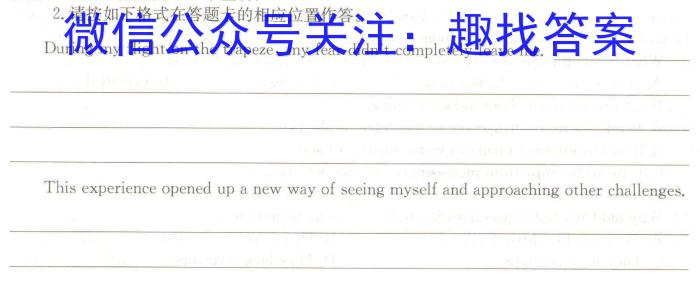 2. 请按如下格式在答题卡的相应位置作答。
微信公众号关注：趣找答案
During my flight on the trapeze, my fear didn't completely leave me.
This experience opened up a new way of seeing myself and approaching other challenges.